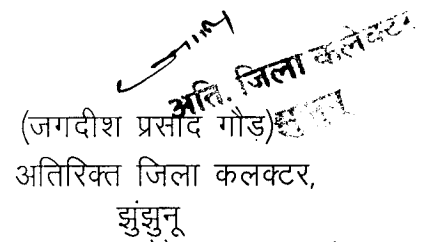 अति. जिला कलेक्टर
झुंझुनू
(जगदीश प्रसाद गौड)
अतिरिक्त जिला कलक्टर,
झुंझुनू